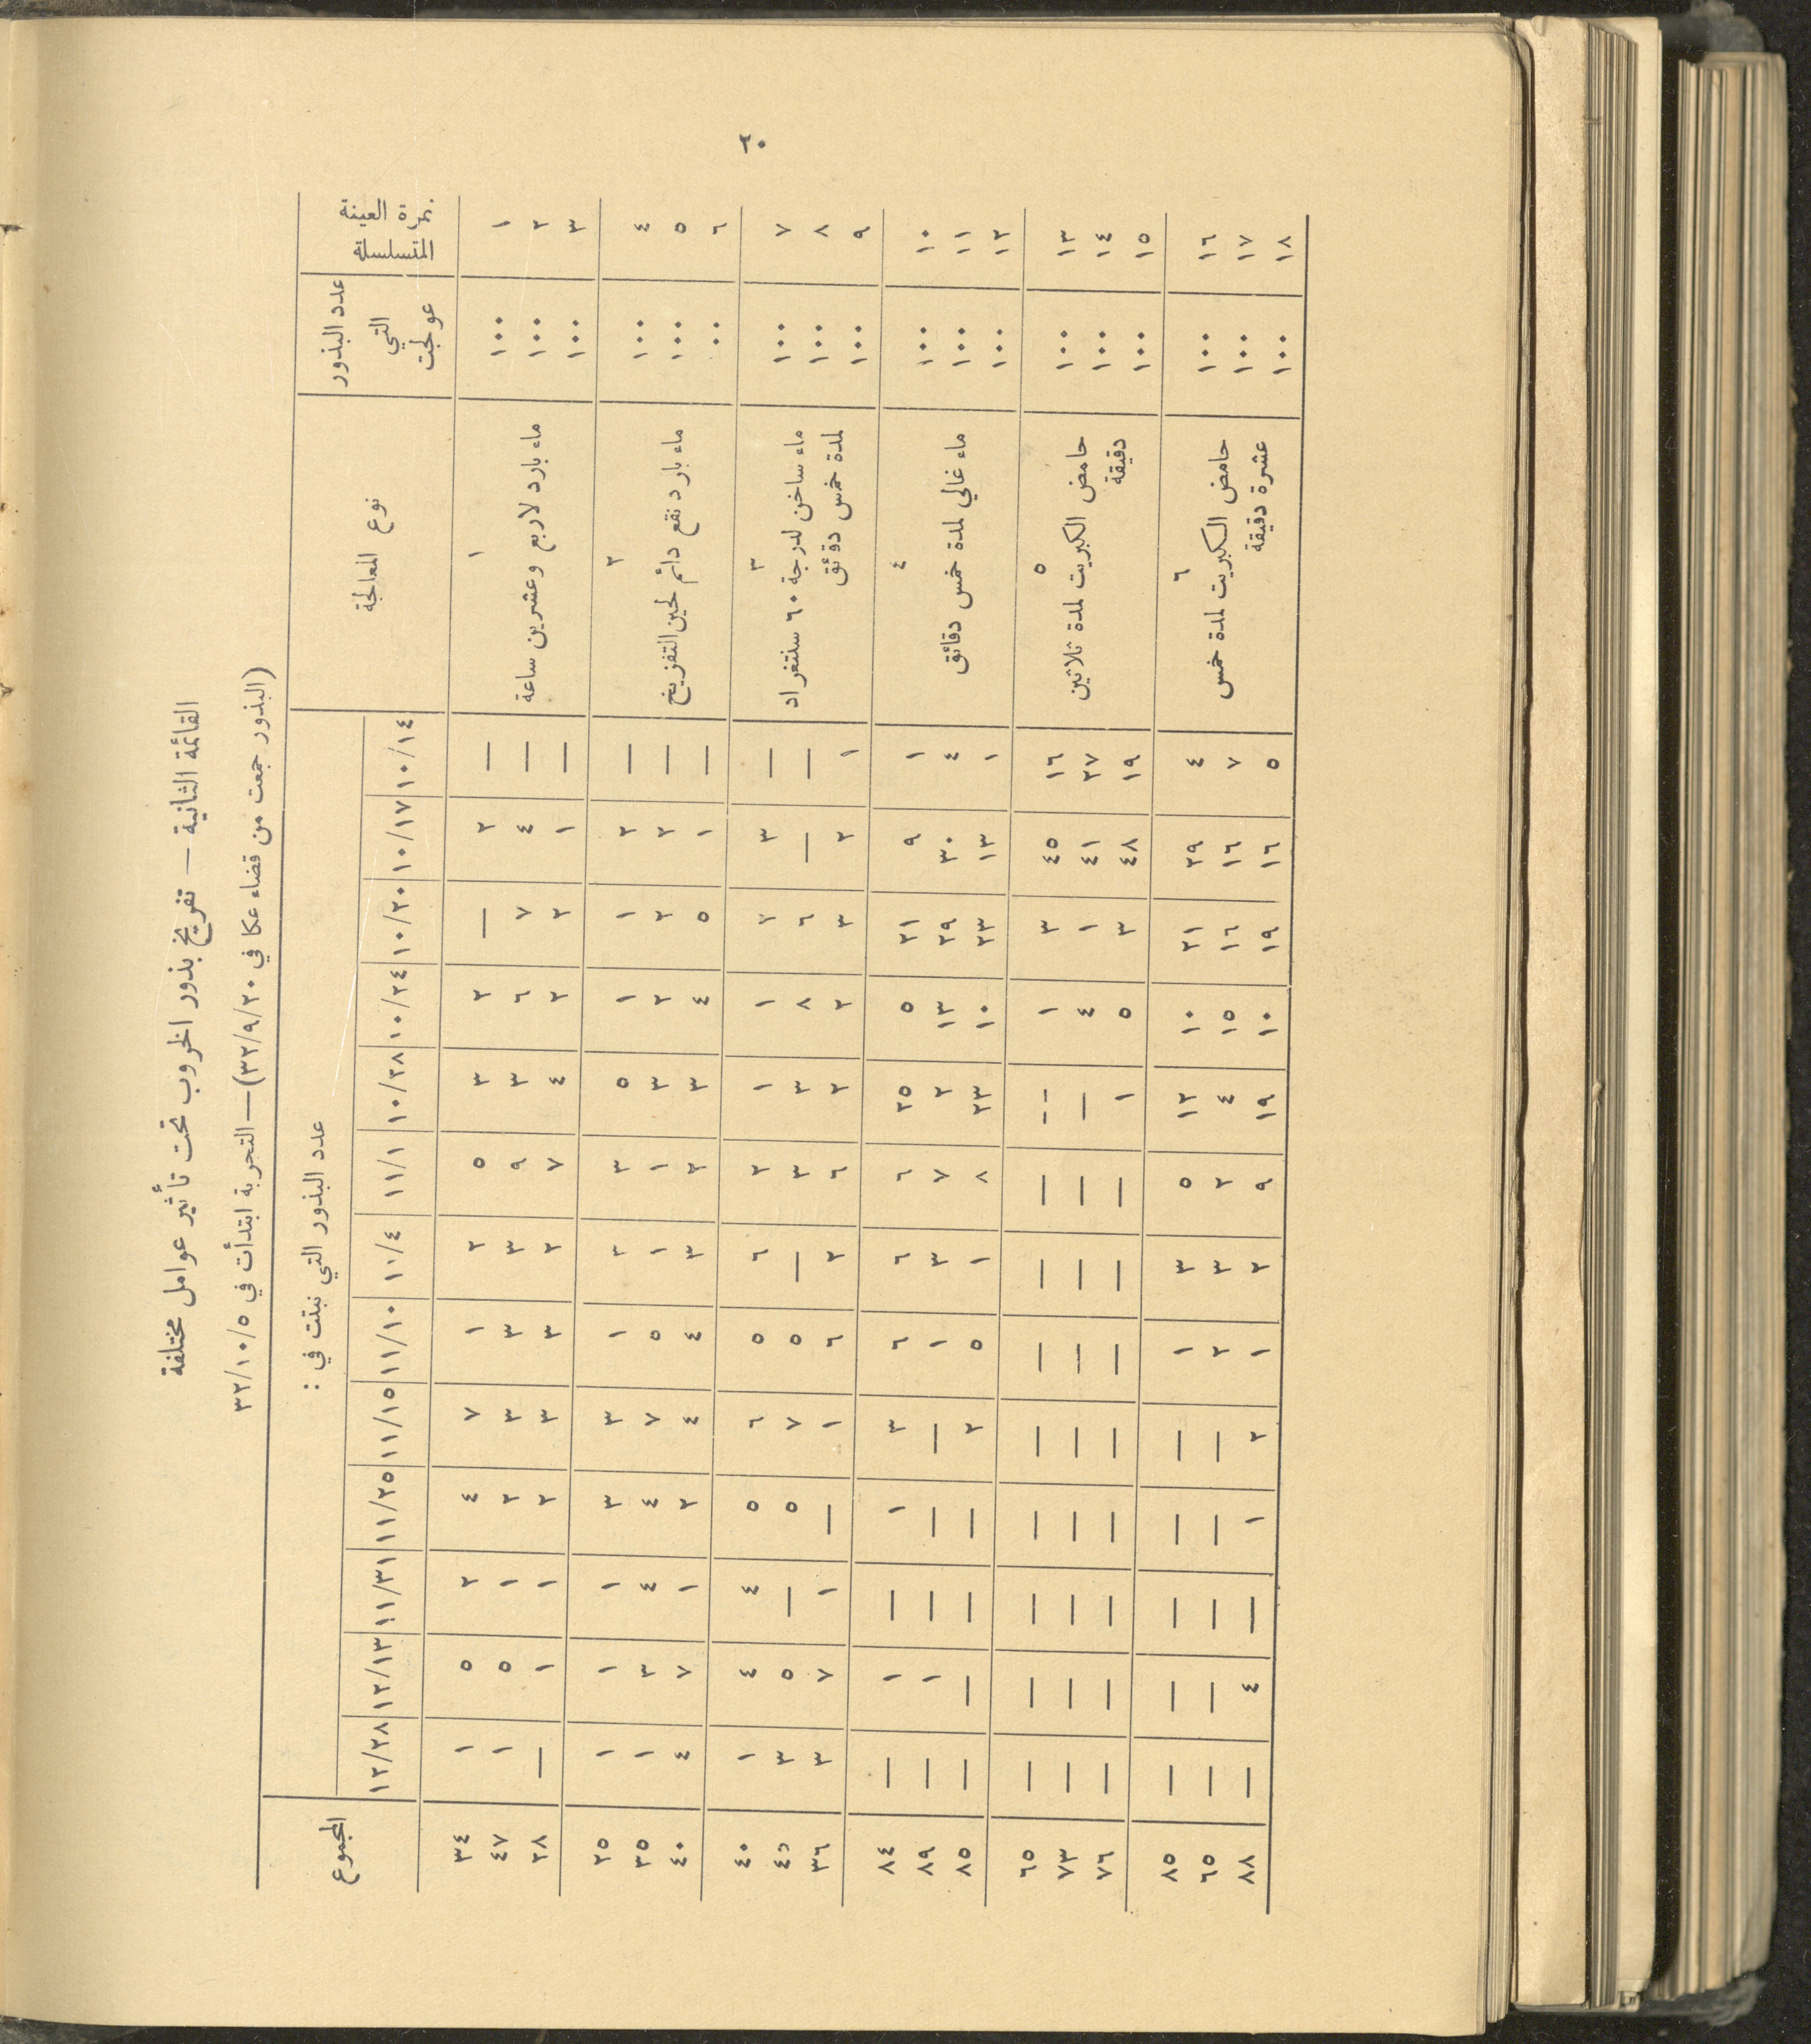 ٢٠
القائمة الثانية — تفريخ بذور الخروب تحت تأثير عوامل مختلفة
(البذور جمعت من قضاء عكا في ٣٢/٩/٢٠) — التجربة ابتدأت في ٣٢/١٠/٥
نمرة العينة المتسلسلة
عدد البذور التي عولجت
نوع المعالجة
عدد البذور التي نبتت في :
المجموع
١٠/١٤ ١٠/١٧ ١٠/٢٠ ١٠/٢٤ ١٠/٢٨ ١١/١ ١١/٤ ١١/١٠ ١١/١٥ ١١/٢٥ ١١/٣١ ١٢/١٣ ١٢/٢٨
١
١ ١٠٠ — ٢ — ٢ ٣ ٥ ٢ ١ ٧ ٤ ٢ ٥ ١ ٣٤
٢ ١٠٠ ماء بارد لاربع وعشرين ساعة — ٤ ٧ ٦ ٣ ٩ ٣ ٣ ٣ ٢ ١ ٥ ١ ٤٧
٣ ١٠٠ — ١ ٢ ٢ ٤ ٧ ٢ ٣ ٣ ٢ ١ ١ — ٢٨
٢
٤ ١٠٠ — ٢ ١ ١ ٥ ٣ ٣ ١ ٣ ٣ ١ ١ ١ ٢٥
٥ ١٠٠ ماء بارد نقع دائم لحين التفريخ — ٢ ٢ ٢ ٣ ١ ١ ٥ ٧ ٤ ٤ ٣ ١ ٣٥
٦ ٠٠ — ١ ٥ ٤ ٣ ٢ ٣ ٤ ٤ ٢ ١ ٧ ٤ ٤٠
٣
٧ ١٠٠ ماء ساخن لدرجة ٦٠ سنتغراد — ٣ ٢ ١ ١ ٢ ٦ ٥ ٦ ٥ ٤ ٤ ١ ٤٠
٨ ١٠٠ لمدة خمس دقائق — — ٦ ٨ ٣ ٣ — ٥ ٧ ٥ — ٥ ٣ ٤٥
٩ ١٠٠ ١ ٢ ٣ ٢ ٢ ٦ ٢ ٦ ١ — ١ ٧ ٣ ٣٦
٤
١٠ ١٠٠ ١ ٩ ٢١ ٥ ٢٥ ٦ ٦ ٦ ٣ ١ — ١ — ٨٤
١١ ١٠٠ ماء غالي لمدة خمس دقائق ٤ ٣٠ ٢٩ ١٣ ٢ ٧ ٣ ١ — — — ١ — ٨٩
١٢ ١٠٠ ١ ١٣ ٢٣ ١٠ ٢٣ ٨ ١ ٥ ٢ — — — — ٨٥
٥
١٣ ١٠٠ حامض الكبريت لمدة ثلاثين ١٦ ٤٥ ٣ ١ — — — — — — — — — ٦٥
١٤ ١٠٠ دقيقة ٢٧ ٤١ ١ ٤ — — — — — — — — — ٧٣
١٥ ١٠٠ ١٩ ٤٨ ٣ ٥ ١ — — — — — — — — ٧٦
٦
١٦ ١٠٠ حامض الكبريت لمدة خمس ٤ ٢٩ ٢١ ١٠ ١٢ ٥ ٣ ١ — — — — — ٨٥
١٧ ١٠٠ عشرة دقيقة ٧ ١٦ ١٦ ١٥ ٤ ٢ ٣ ٢ — — — — — ٦٥
١٨ ١٠٠ ٥ ١٦ ١٩ ١٠ ١٩ ٩ ٢ ١ ٢ ١ — ٤ — ٨٨